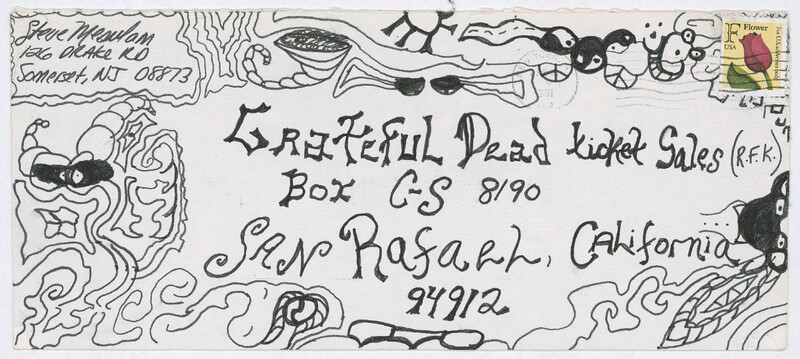 Steve
126 DRAKE RD
Somerset, NJ 08873
F Flower
USA
Grateful Dead ticket Sales (R.F.K.)
Box C-S 8190
SAN Rafael, California
94912